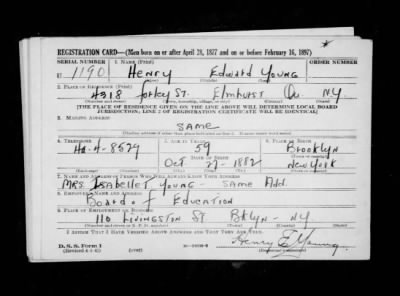 REGISTRATION CARD—(Men born on or after April 28, 1877 and on or before February 16, 1897)
SERIAL NUMBER 1. NAME (Print)
U 1190 HENRY Edward YOUNG
(First) (Middle) (Last)
2. PLACE OF RESIDENCE (Print)
4318 ST. Elmhurst Qu. N.Y.
(Number and street) (Town, township, village, or city) (County) (State)
[THE PLACE OF RESIDENCE GIVEN ON THE LINE ABOVE WILL DETERMINE LOCAL BOARD
JURISDICTION; LINE 2 OF REGISTRATION CERTIFICATE WILL BE IDENTICAL]
3. MAILING ADDRESS
SAME
4. TELEPHONE 5. AGE IN YEARS 6. PLACE OF BIRTH
Ha-4-8529 59 Brooklyn
DATE OF BIRTH
Oct 27 - 1882 New York
7. NAME AND ADDRESS OF PERSON WHO WILL ALWAYS KNOW YOUR ADDRESS
MRS Isabelle T YOUNG - SAME Add.
8. EMPLOYER'S NAME AND ADDRESS
Board of Education
9. PLACE OF EMPLOYMENT OR BUSINESS
110 Livingston St Bklyn - NY.
(Number and street or R. F. D. number) (Town) (County) (State)
I AFFIRM THAT I HAVE VERIFIED ABOVE ANSWERS AND THAT THEY ARE TRUE.
D. S. S. Form 1
(Revised 4-1-42) (over)
Henry E Young